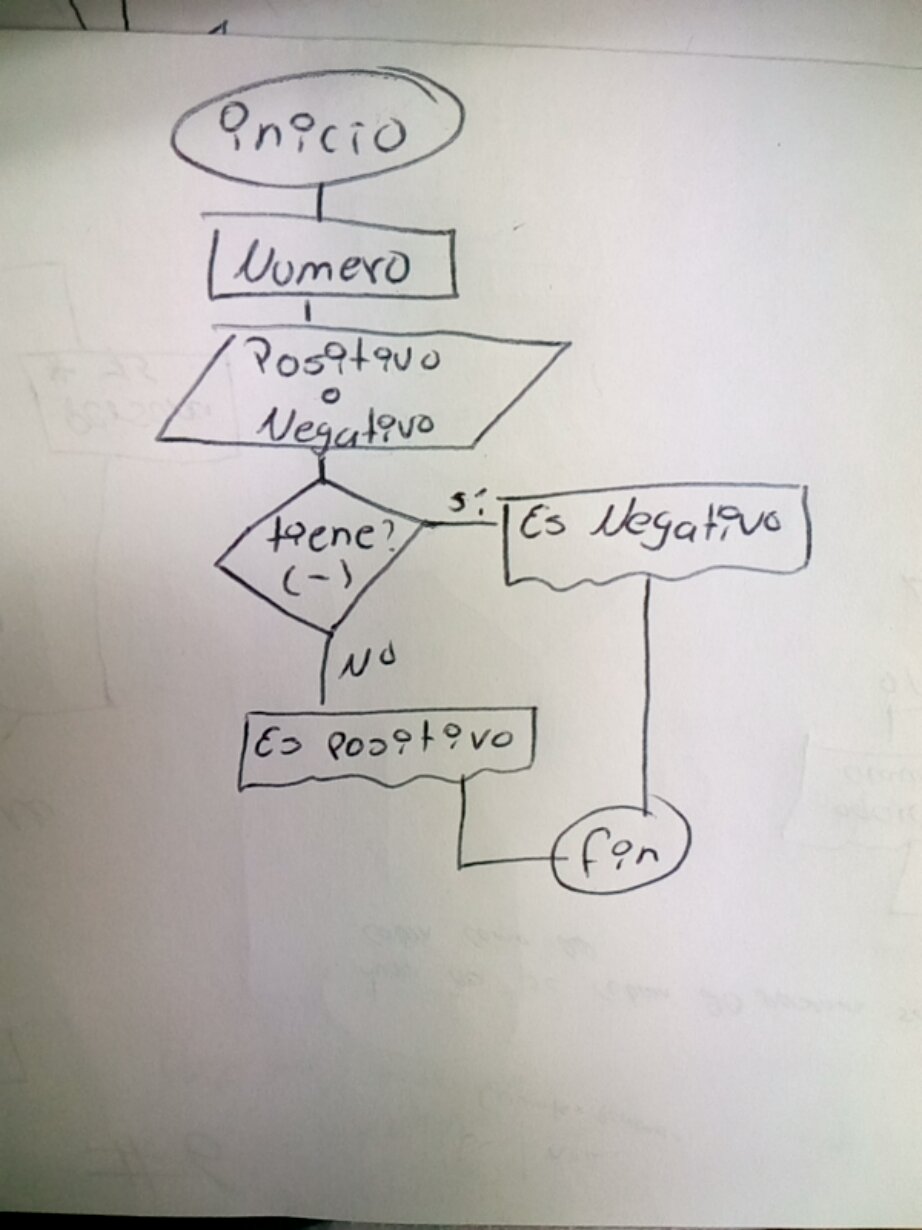 inicio
Numero
Positivo
o
Negativo
tiene?
(-)
sí
Es Negativo
NO
Es positivo
fin